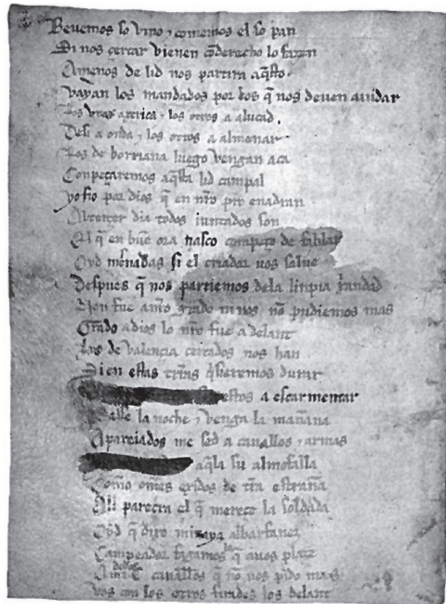 Beuemos so vino ⁊ comemos el so pan
Si nos çercar vienen cõ derecho lo fazen
Amenos de lid nos partira aq̃sto
Vayan los mandados por los q̃ nos deuen aiudar
Los vnos a xerica ⁊ los otros a alucad
Desi a onda ⁊ los otros a almenar
Los de borriana luego vengan aca
Conpeçaremos aq̃sta lid campal
yo fio por dios q̃ en nr̃o pro enadran
Al terçer dia todos iuntados son
El q̃ en buẽ ora nasco compeço de fablar
Oyd meSnadas si el criador uos salue
Despues q̃ nos partiemos dela linpia xp̃andad
Non fue a nr̃o grado ni nos nõ pudiemos mas
Grado a dios lo nr̃o fue adelant
Los de valençia çercados nos han
Si en estas tr̃ras q̃sieremos durar
estos a escarmentar
la noche ⁊ venga la mañana
Apareiados me sed a cauallos ⁊ armas
aq̃la su almofalla
Commo om̃es exidos de tr̃ra estraña
Alli pareçra el q̃ mereçe la soldada
Oyd q̃ dixo minaya albarfanez
Campeador fagamos lo q̃ auos plaze
A mi dedes C caualłos q̃ nõ uos pido mas
Vos con los otros firades los delant